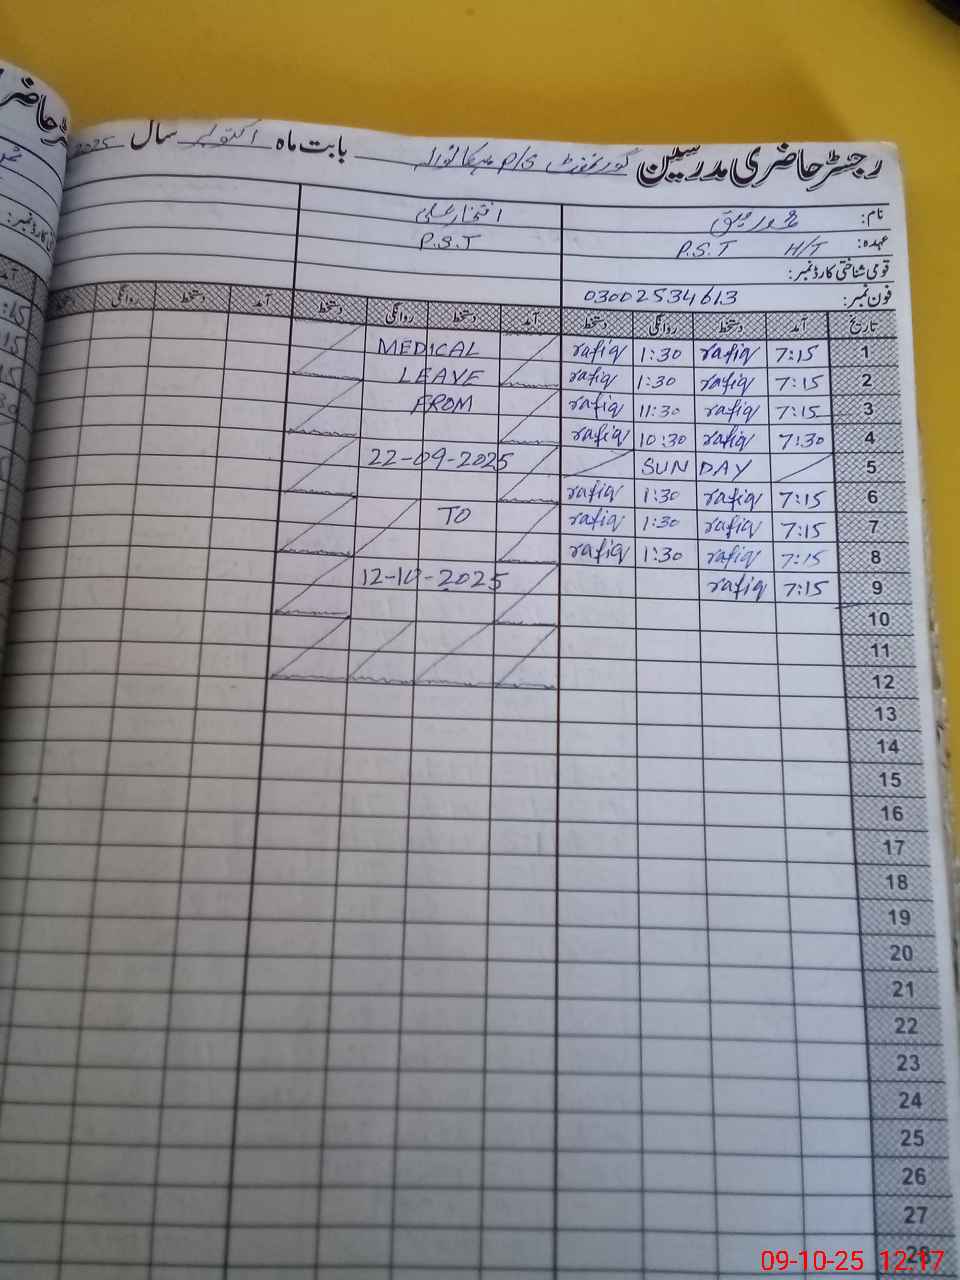 رجسٹر حاضری مدرسین گورنمنٹ P/S بابت ماہ اکتوبر سال 2025
نام: محمد رفیق افتخار علی
عہدہ: P.S.T H/T P.S.T
قومی شناختی کارڈ نمبر:
فون نمبر: 03002534613
تاریخ آمد دستخط روانگی دستخط آمد دستخط روانگی دستخط آمد دستخط روانگی دستخط
1 7:15 rafiq 1:30 rafiq MEDICAL
2 7:15 rafiq 1:30 rafiq LEAVE
3 7:15 rafiq 11:30 rafiq FROM
4 7:30 rafiq 10:30 rafiq
5 SUNDAY 22-09-2025
6 7:15 rafiq 1:30 rafiq
7 7:15 rafiq 1:30 rafiq TO
8 7:15 rafiq 1:30 rafiq
9 7:15 rafiq 12-10-2025
10
11
12
13
14
15
16
17
18
19
20
21
22
23
24
25
26
27
28
09-10-25 12:17